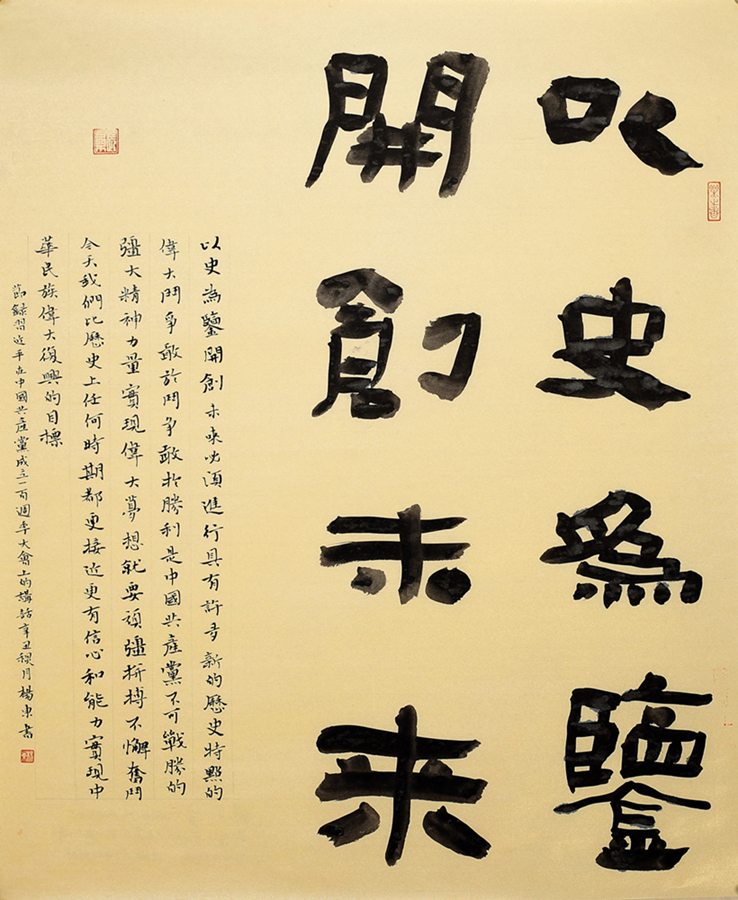 以史為鑒
開創未來
以史為鑒開創未来必須進行具有許多新的歷史特點的
偉大鬥爭敢於鬥爭敢於勝利是中國共產黨不可戰勝的
彊大精神力量實現偉大夢想就要頑彊拼搏不懈奮鬥
今天我們比歷史上任何時期都更接近更有信心和能力實現中
華民族偉大復興的目標
節錄習近平在中國共產黨成立一百週年大會上的講話辛丑穐月楊東書